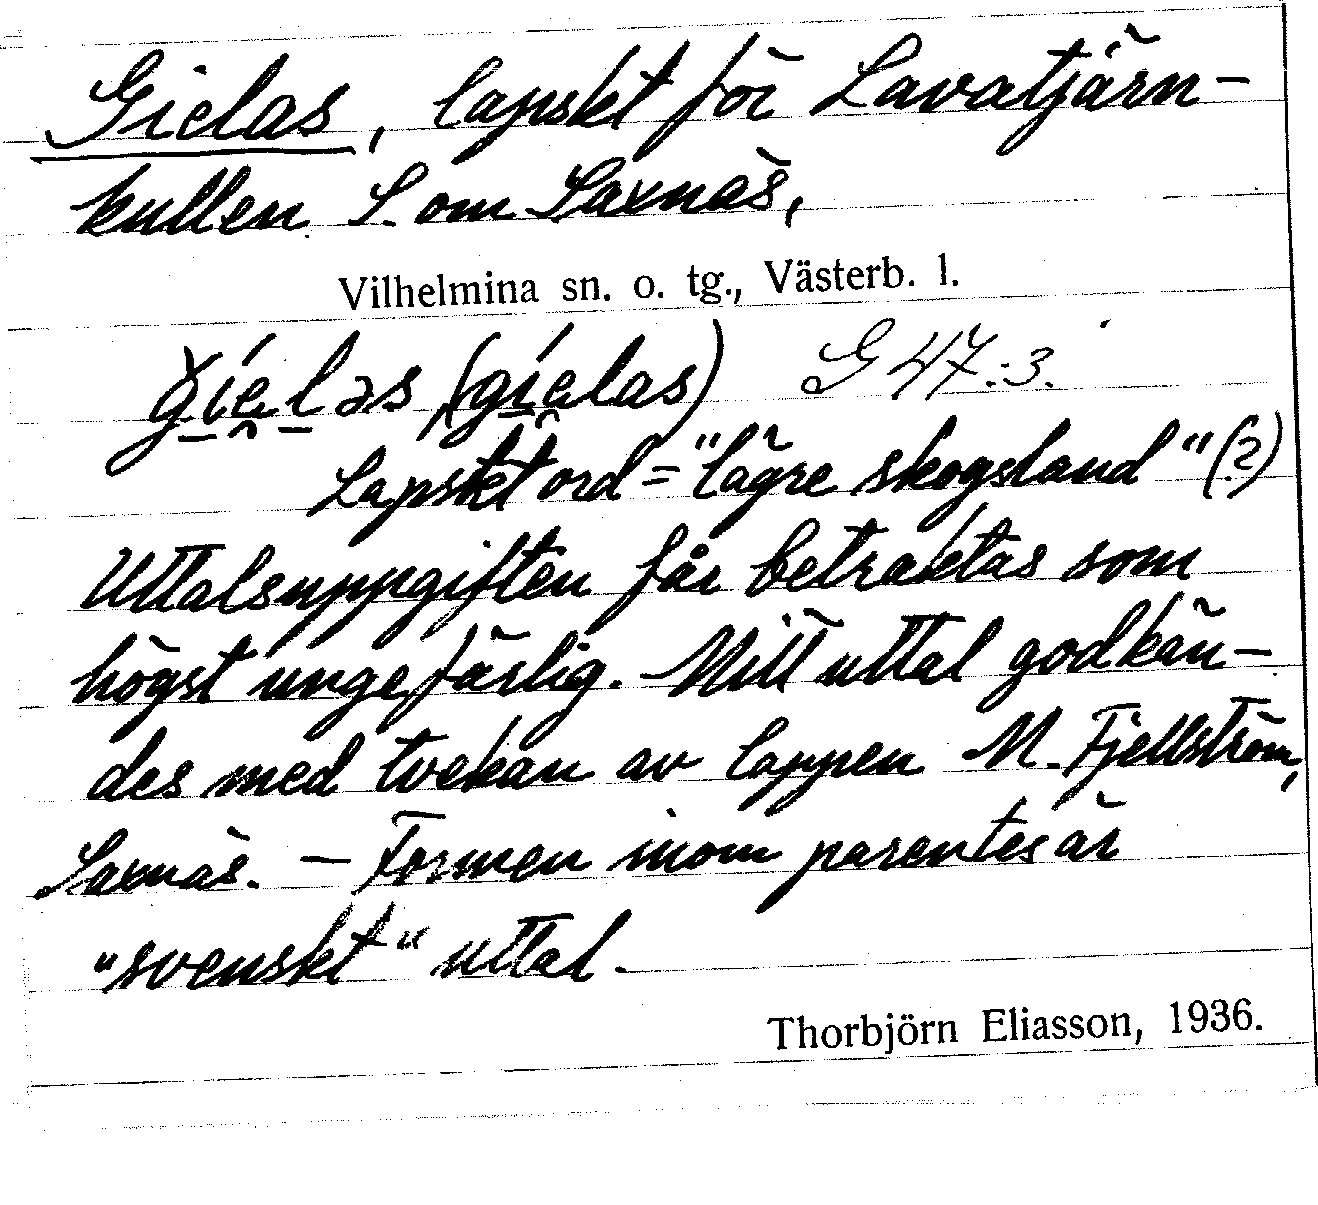 Gielas, lapskt för Lavatjärn-
kullen S. om Saxnäs,
Vilhelmina sn. o. tg., Västerb. l.
(gielas) G 47:3.
Lapskt ord = "lägre skogsland" (?)
Uttalsuppgiften får betraktas som
högst ungefärlig. Mitt uttal godkän-
des med tvekan av lappen M. Fjellström,
Saxnäs. — Formen inom parentes är
"svenskt" uttal.
Thorbjörn Eliasson, 1936.